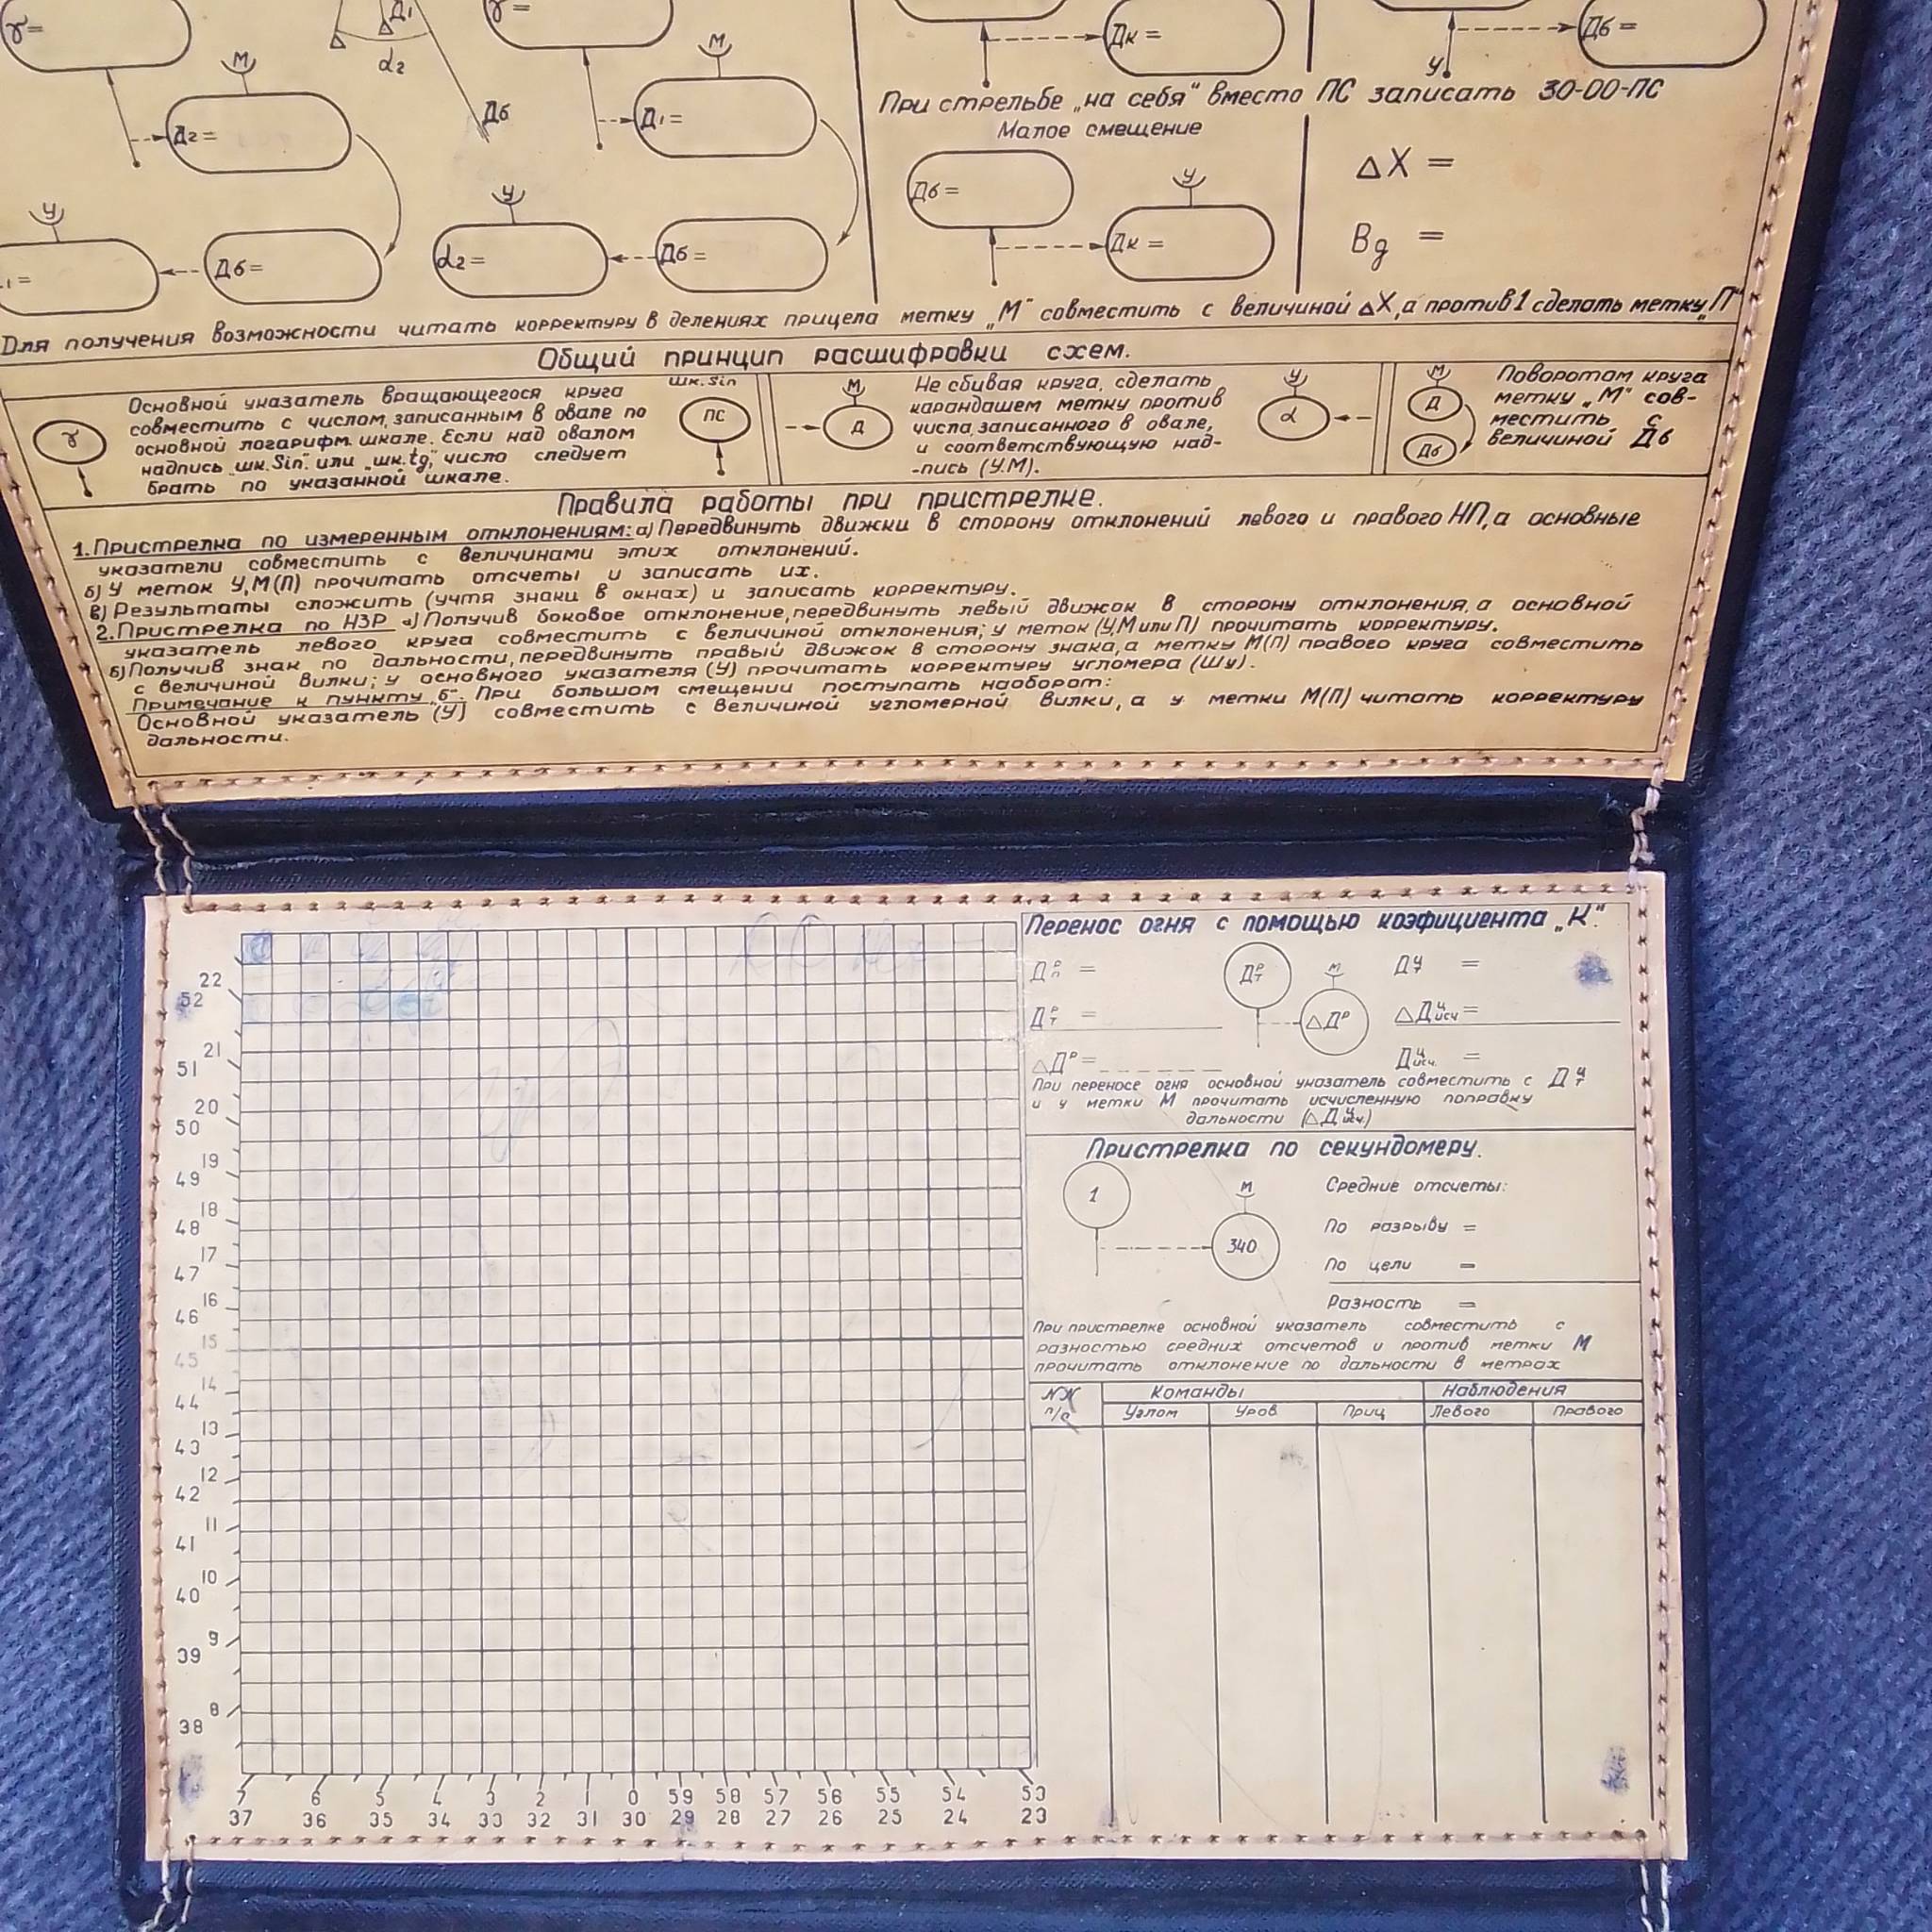 γ=
Д₁
γ=
Дк =
Дб =
α₂
М
М
У
Дб
Д₂=
Д₁=
При стрельбе „на себя" вместо ПС записать 30-00-ПС
Малое смещение
ΔX =
Дб=
У
У
У
Дб=
α₂=
Дб=
Дк =
Вд =
Для получения возможности читать корректуру в делениях прицела метку „М" совместить с величиной ΔX, а против 1 сделать метку „П"
Общий принцип расшифровки схем.
γ
Основной указатель вращающегося круга
совместить с числом, записанным в овале по
основной логарифм. шкале. Если над овалом
надпись „шк. Sin" или „шк. tg," число следует
брать по указанной шкале.
шк. Sin
ПС
М
Д
Не сбивая круга, сделать
карандашем метку против
числа, записанного в овале,
и соответствующую над-
-пись (У.М).
У
α
М
Д
Дб
Поворотом круга
метку „М" сов-
местить с
величиной Дб
Правила работы при пристрелке.
1. Пристрелка по измеренным отклонениям: а) Передвинуть движки в сторону отклонений левого и правого НП, а основные
указатели совместить с величинами этих отклонений.
б) У меток У,М(П) прочитать отсчеты и записать их.
в) Результаты сложить (учтя знаки в окнах) и записать корректуру.
2. Пристрелка по НЗР а) Получив боковое отклонение, передвинуть левый движок в сторону отклонения, а основной
указатель левого круга совместить с величиной отклонения; у меток (У,М или П) прочитать корректуру.
б) Получив знак по дальности, передвинуть правый движок в сторону знака, а метку М(П) правого круга совместить
с величиной вилки; у основного указателя (У) прочитать корректуру угломера (Шу).
Примечание к пункту „б". При большом смещении поступать наоборот:
Основной указатель (У) совместить с величиной угломерной вилки, а у метки М(П) читать корректуру
дальности.
22
52
21
51
20
50
19
49
18
48
17
47
16
46
15
45
14
44
13
43
12
42
11
41
10
40
9
39
8
38
7 6 5 4 3 2 1 0 59 58 57 56 55 54 53
37 36 35 34 33 32 31 30 29 28 27 26 25 24 23
Перенос огня с помощью коэфициента „К".
Дᵖп =
Дᵖт
М
Дᵖт =
ΔДᵖ
ΔДᶣисч =
ΔДᵖ =
Дᶣисч. =
При переносе огня основной указатель совместить с Дᶣт
и у метки М прочитать исчисленную поправку
дальности (ΔДᶣисч.)
Пристрелка по секундомеру.
1
М
340
Средние отсчеты:
По разрыву =
По цели =
Разность =
При пристрелке основной указатель совместить с
разностью средних отсчетов и против метки М
прочитать отклонение по дальности в метрах
Команды Наблюдения
Углом Уров Приц Левого Правого